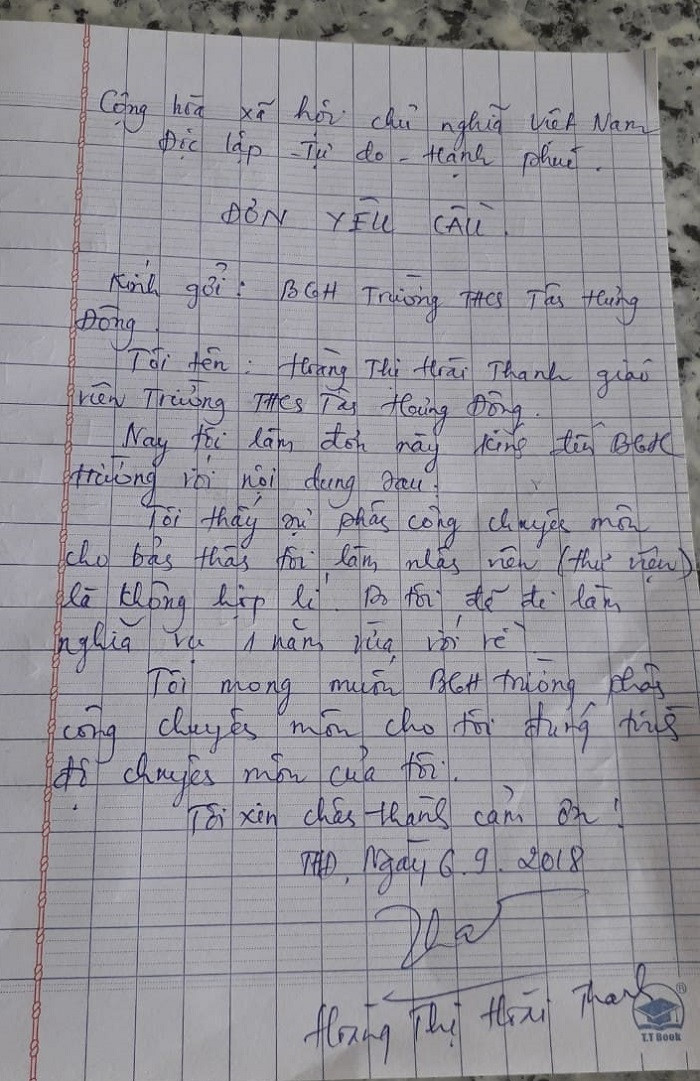 Cộng hòa xã hội chủ nghĩa Việt Nam
Độc lập - Tự do - Hạnh phúc.
ĐƠN YÊU CẦU.
Kính gởi: BGH Trường THCS Tây Hưng
Đông.
Tôi tên: Hoàng Thị Hoài Thanh giáo
viên Trường THCS Tây Hưng Đông.
Nay tôi làm đơn này kính đến BGH
trường với nội dung sau:
Tôi thấy sự phân công chuyên môn
cho bản thân tôi làm nhân viên (thư viện)
là không hợp lí. Do tôi đã đi làm
nghĩa vụ 1 năm vừa rồi về.
Tôi mong muốn BGH trường phân
công chuyên môn cho tôi đúng trình
độ chuyên môn của tôi.
Tôi xin chân thành cảm ơn!
THĐ, Ngày 6.9.2018
Hoàng Thị Hoài Thanh
T.T Book